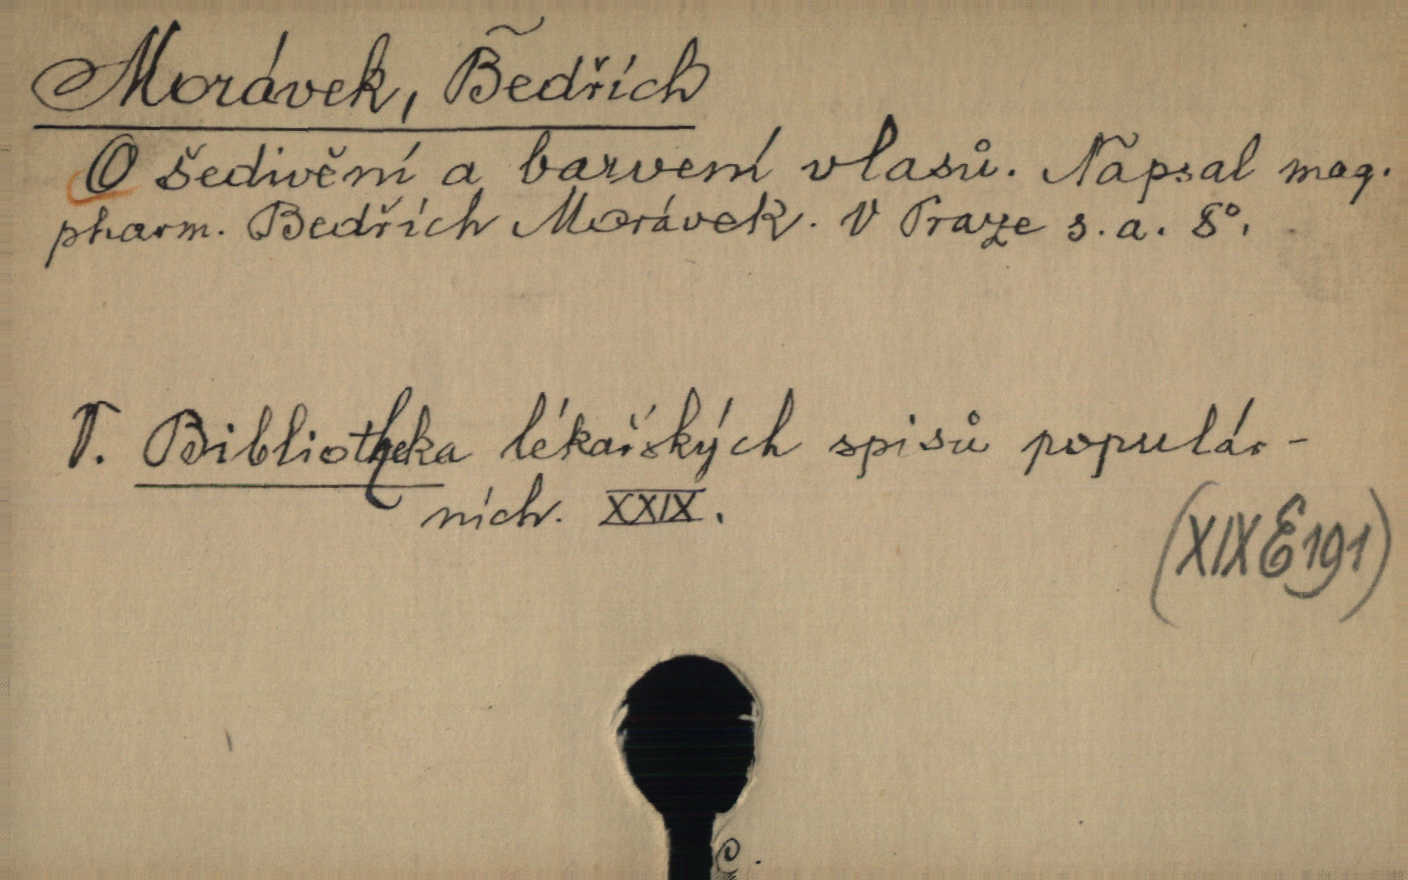 Morávek, Bedřich
O šedivění a barvení vlasů. Napsal mag.
pharm. Bedřich Morávek. V Praze s. a. 8°.
V. Bibliotheka lékařských spisů populár-
ních. XXIX.
(XIX E 191)